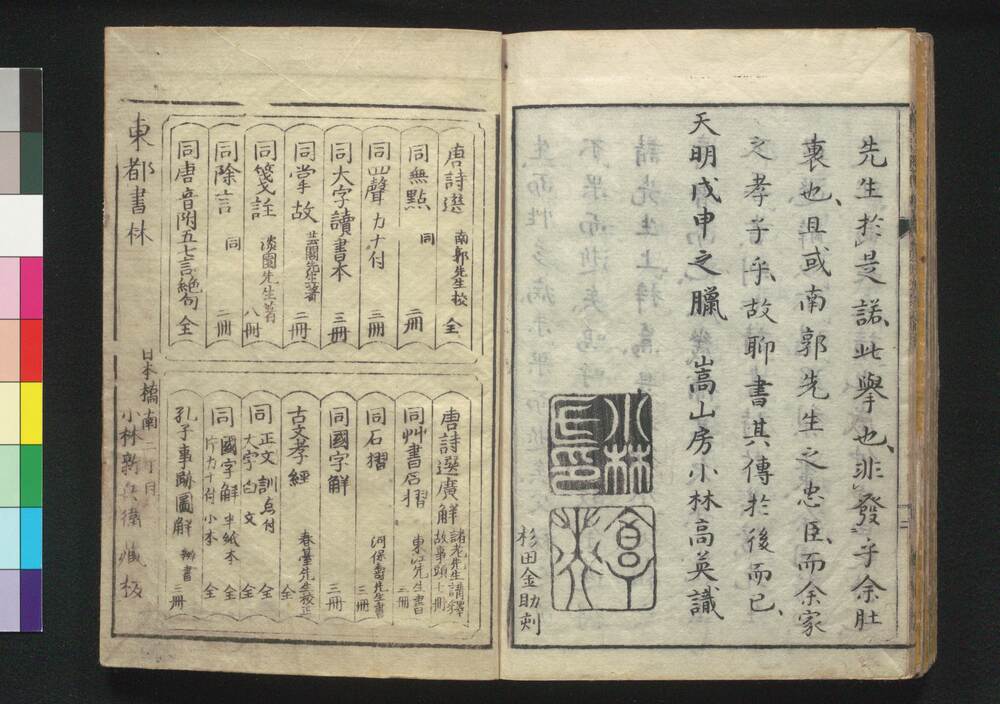 先生於是諾此舉也非發乎余肚
裏也且或南郭先生之忠臣而余家
之孝子乎故聊書其傳於後而已
天明戊申之臘嵩山房小林高英識
小林
高英
杉田金助刻
唐詩選 南郭先生校 全
同無點 同 二冊
同四聲 カナ付 三冊
同大字讀書本 三冊
同掌故 芸閣先生著 二冊
同箋註 淡園先生著 八冊
同除言 同 二冊
同唐音附五七言絶句 全
唐詩選廣解 諸老先生講釋 故事頭七冊
同艸書石摺 東江先生書 三冊
同石摺 河保壽先生書 三冊
同國字解 三冊
古文孝經 春臺先生校正 全
同 正文訓点付 全
大字白文
同 國字解 半紙本 全
片カナ付 小本 全
孔子事跡圖解 繪書 三冊
東都書林
日本橋南
小林新兵衛藏板